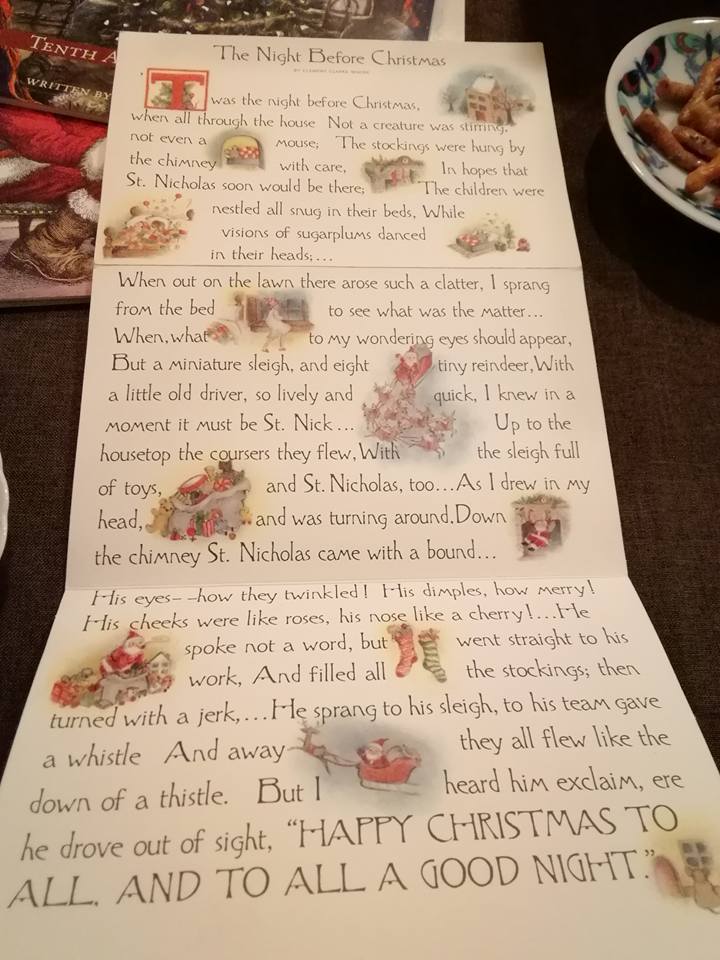 TENTH A
WRITTEN BY
The Night Before Christmas
BY CLEMENT CLARKE MOORE
Twas the night before Christmas,
when all through the house Not a creature was stirring,
not even a mouse; The stockings were hung by
the chimney with care, In hopes that
St. Nicholas soon would be there; The children were
nestled all snug in their beds, While
visions of sugarplums danced
in their heads;...
When out on the lawn there arose such a clatter, I sprang
from the bed to see what was the matter...
When, what to my wondering eyes should appear,
But a miniature sleigh, and eight tiny reindeer, With
a little old driver, so lively and quick, I knew in a
moment it must be St. Nick... Up to the
housetop the coursers they flew, With the sleigh full
of toys, and St. Nicholas, too...As I drew in my
head, and was turning around. Down
the chimney St. Nicholas came with a bound...
His eyes--how they twinkled! His dimples, how merry!
His cheeks were like roses, his nose like a cherry!...He
spoke not a word, but went straight to his
work, And filled all the stockings; then
turned with a jerk,...He sprang to his sleigh, to his team gave
a whistle And away they all flew like the
down of a thistle. But I heard him exclaim, ere
he drove out of sight, "HAPPY CHRISTMAS TO
ALL, AND TO ALL A GOOD NIGHT."